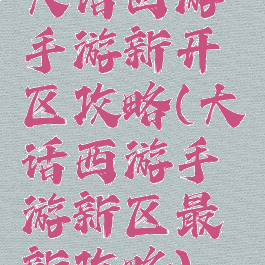 大话西游
手游新开
区攻略(大
话西游手
游新区最
新攻略)